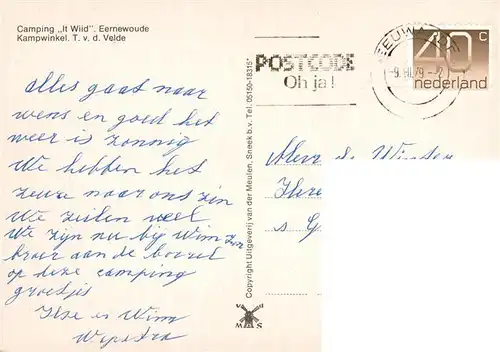 Camping „It Wiid". Eernewoude
Kampwinkel. T. v. d. Velde
POSTCODE
Oh ja!
40 c
nederland
Alles gaat naar
wens en goed het
weer is zonnig
We hebben het
zeuze naar ons zin
We zeilen veel
We zijn nu bij Wim z'n
broer aan de
op deze camping
groetjes
Ilse en Wim
Wijpstra
Copyright Uitgeverij van der Meulen, Sneek b.v. Tel. 05150-18315*
v d
M S
Mevr. de
s G